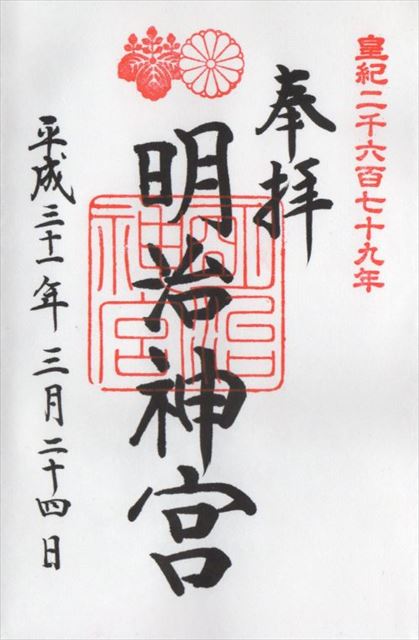 皇紀二千六百七十九年
奉拝
明治神宮
明治
神宮
平成三十一年三月二十四日